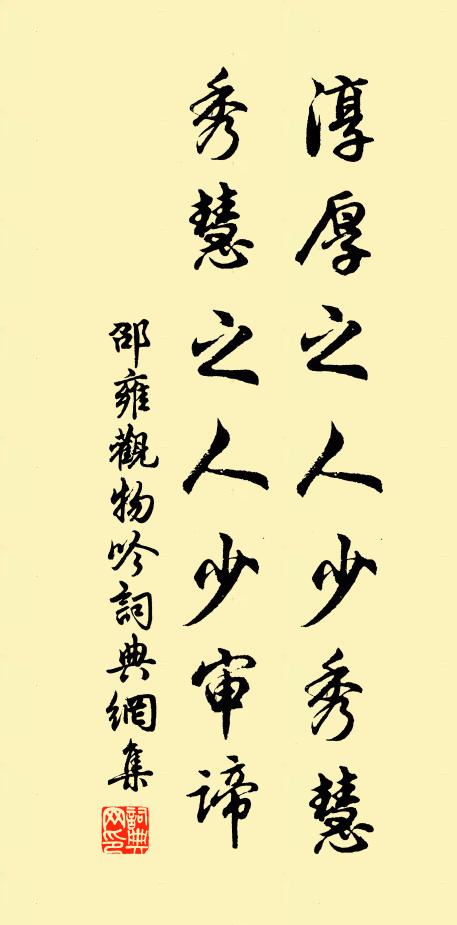 淳厚之人少秀慧
秀慧之人少审諦
邵雍觀物吟詞典網集
詞典
网印